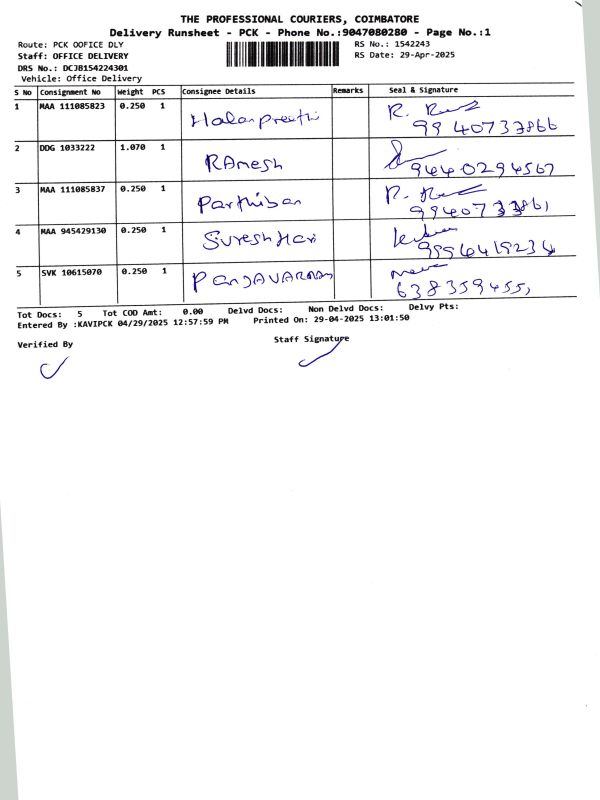 THE PROFESSIONAL COURIERS, COIMBATORE
Delivery Runsheet - PCK - Phone No.:9047080280 - Page No.:1
Route: PCK OOFICE DLY
RS No.: 1542243
Staff: OFFICE DELIVERY
RS Date: 29-Apr-2025
DRS No.: DCJB154224301
Vehicle: Office Delivery
S No Consignment No Weight PCS Consignee Details Remarks Seal & Signature
1 MAA 111085823 0.250 1
2 DDG 1033222 1.070 1 RAmesh 9440294567
3 MAA 111085837 0.250 1 Parthiban
4 MAA 945429130 0.250 1 Suresh Hari
5 SVK 10615070 0.250 1
Tot Docs: 5 Tot COD Amt: 0.00 Delvd Docs: Non Delvd Docs: Delvy Pts:
Entered By :KAVIPCK 04/29/2025 12:57:59 PM Printed On: 29-04-2025 13:01:50
Verified By
Staff Signature